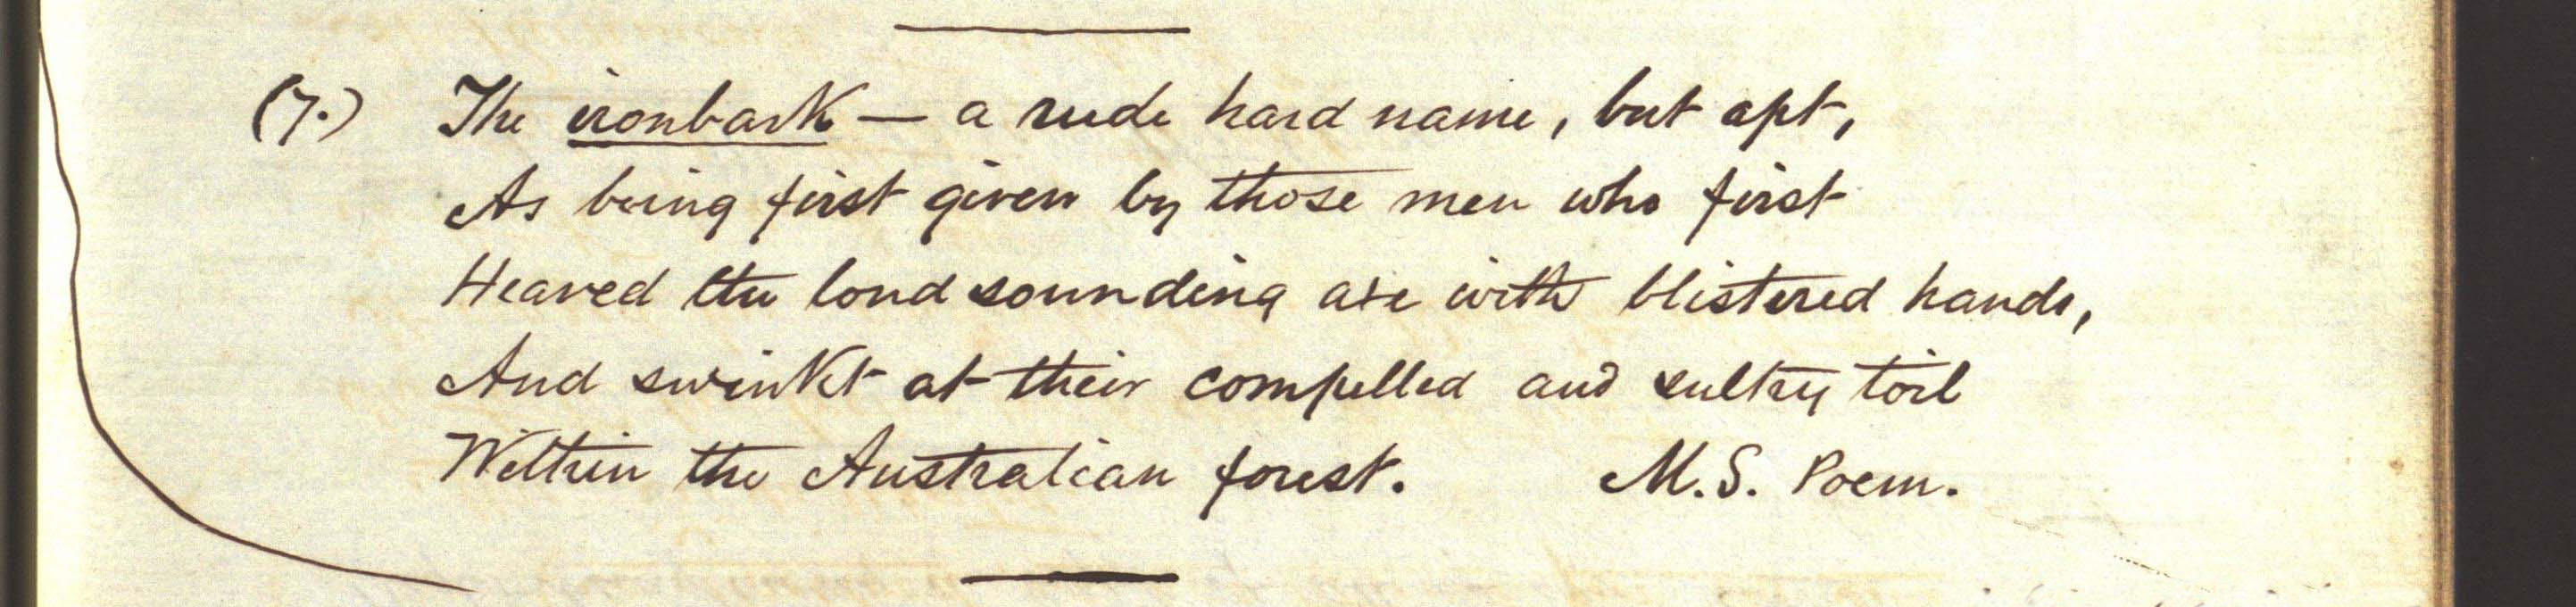 (7.) The ironbark — a rude hard name, but apt,
As being first given by those men who first
Heaved the loud sounding axe with blistered hands,
And swinkt at their compelled and sultry toil
Within the Australian forest. M.S. Poem.